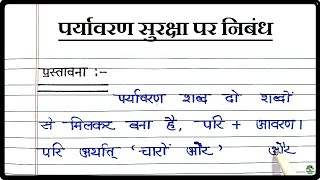 पर्यावरण सुरक्षा पर निबंध
प्रस्तावना :–
पर्यावरण शब्द दो शब्दों
से मिलकर बना है, परि + आवरण।
परि अर्थात् ‘चारों और’ और